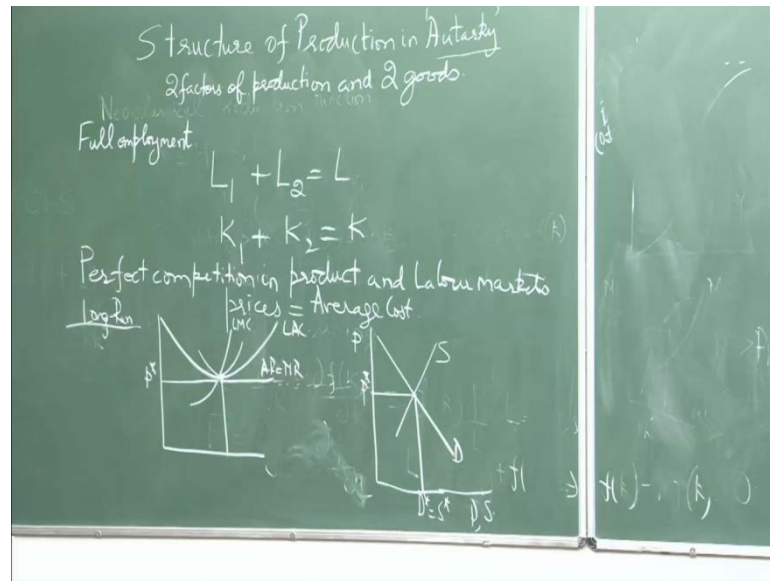 Structure of Production in 'Autarky'
2 factors of production and 2 goods.
Full employment
L₁ + L₂ = L
K₁ + K₂ = K
Perfect competition in product and Labour markets
Long Run
prices = Average Cost
LMC
LAC
P*
AR=MR
P
S
P*
D
D*=S*
D, S